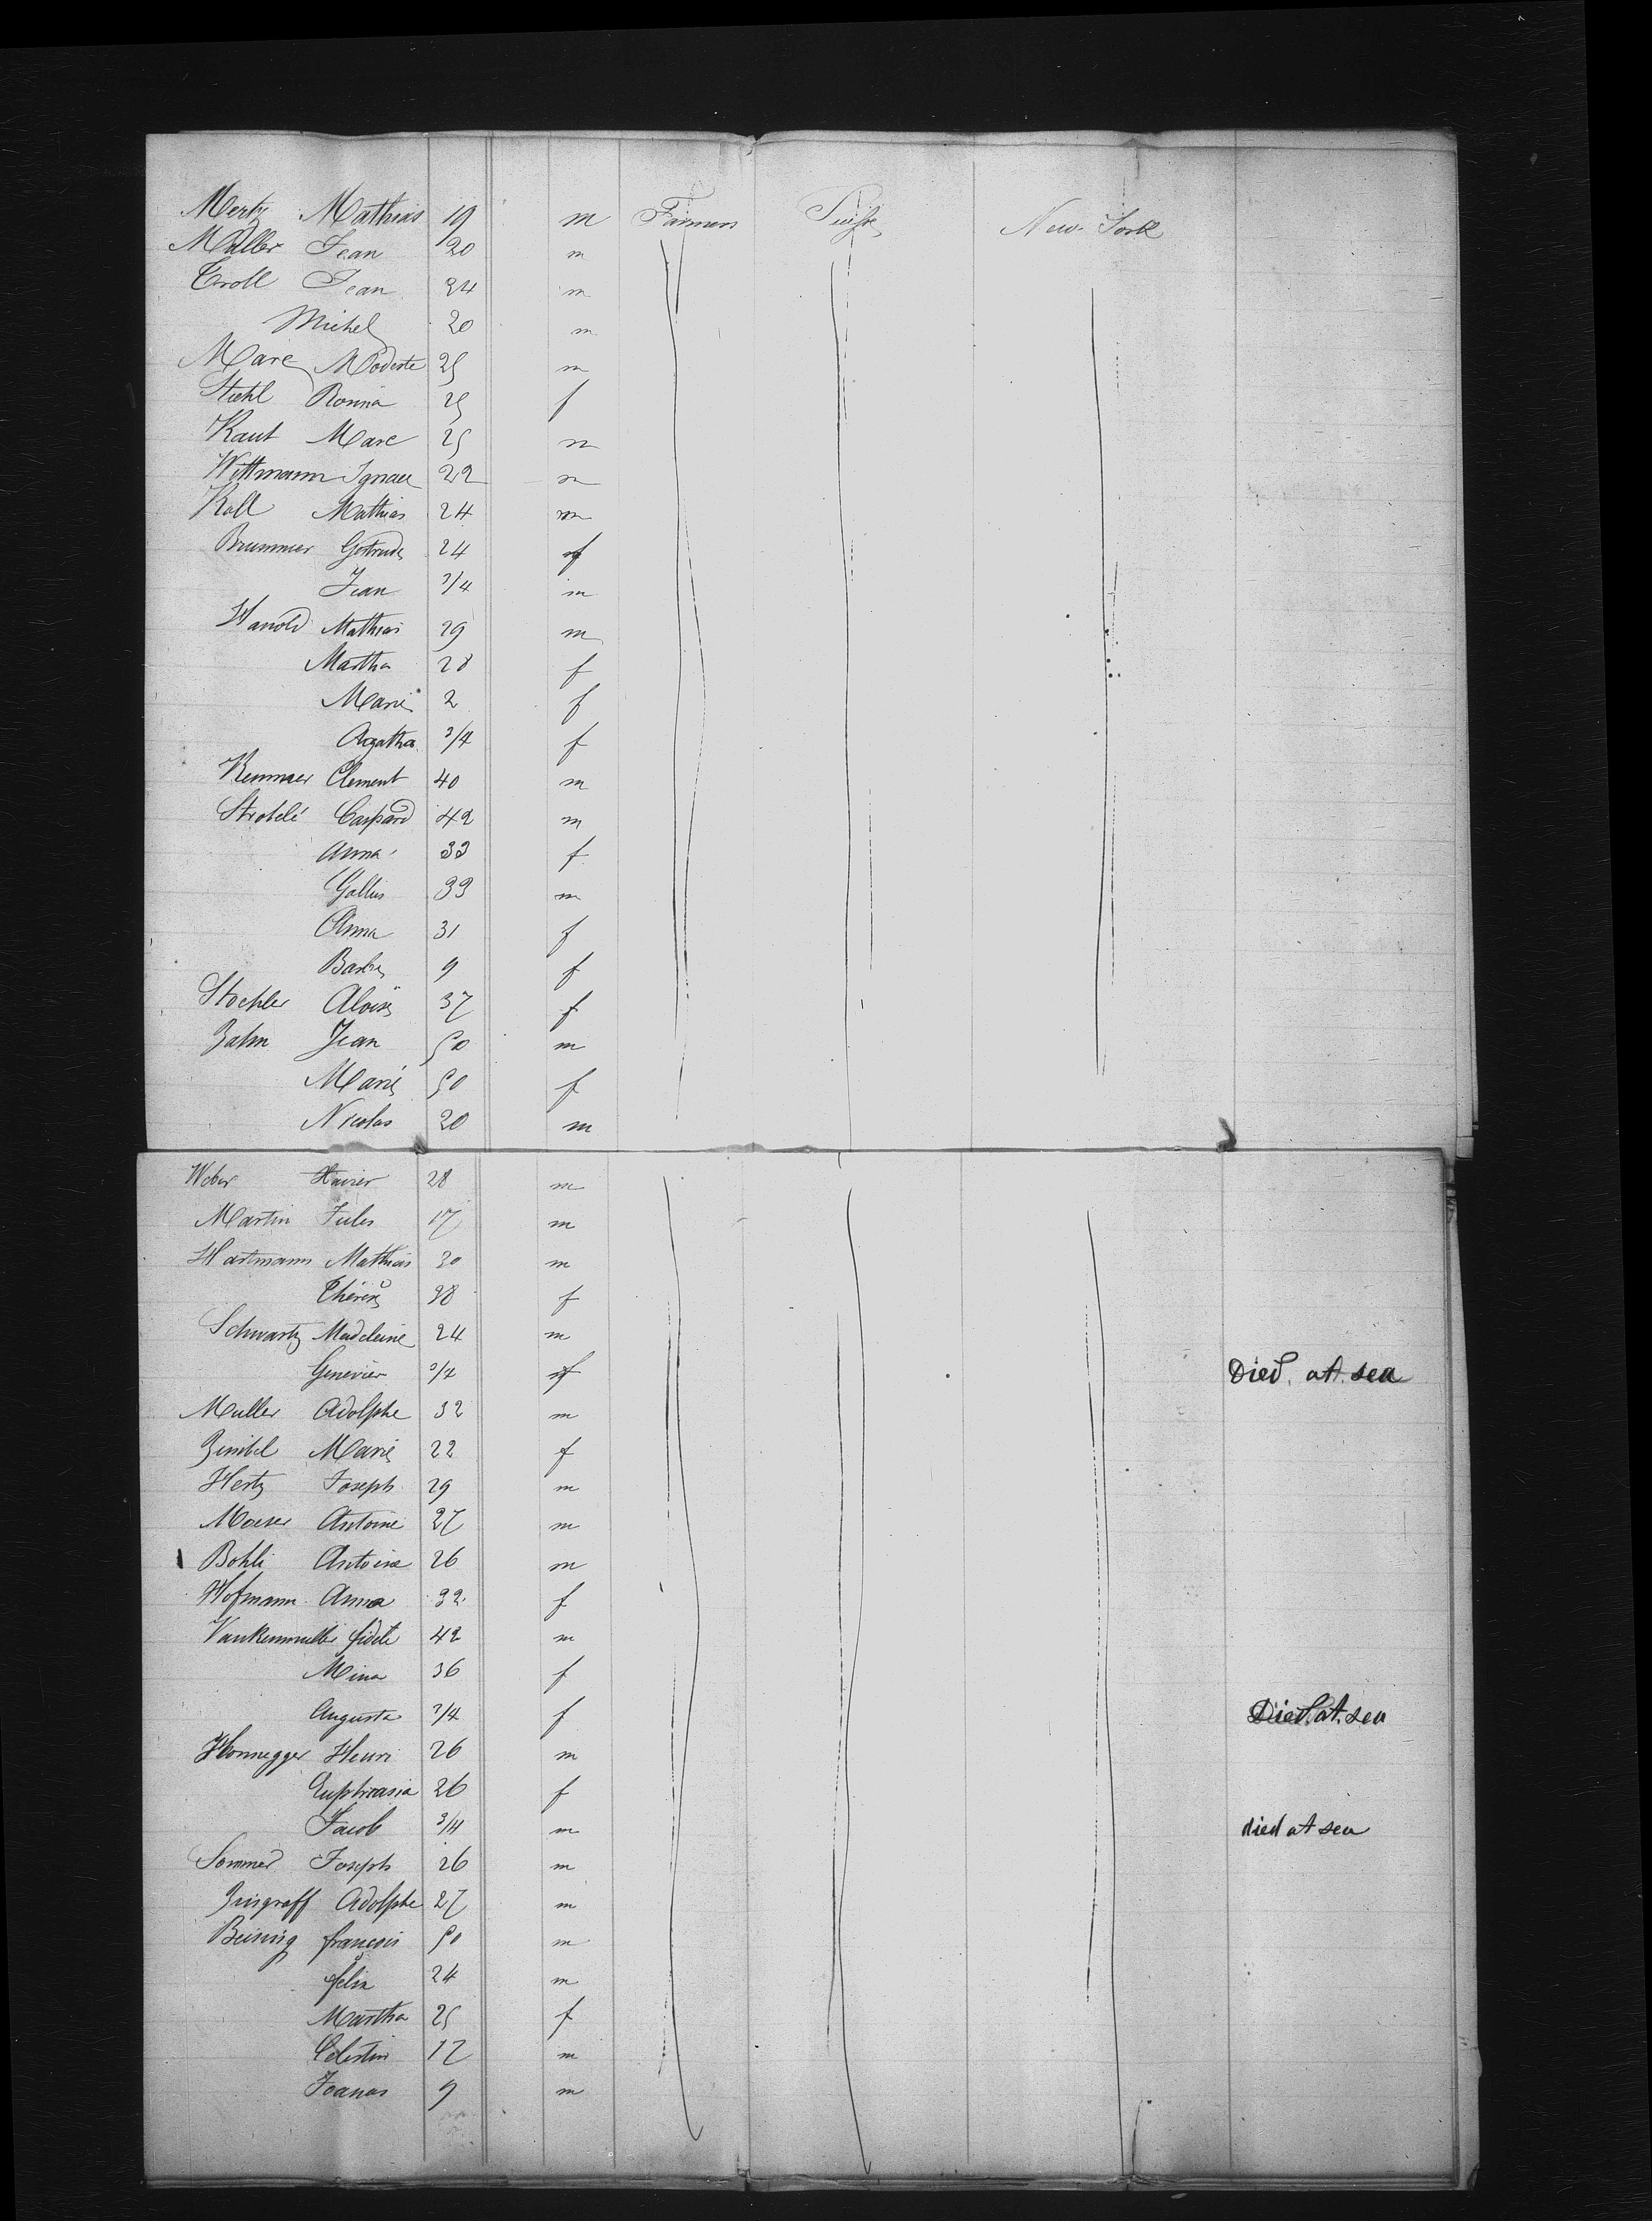 Mertz Mathias 19 m Farmers Suisse New York
Muller Jean 20 m
Croll Jean 24 m
Michel 20 m
Marc Modeste 25 m
Stehl Rosina 25 f
Kaut Marc 25 m
Wittmann Ignace 22 m
Koll Mathias 24 m
Brummer Gertrude 24 f
Jean 3/4 m
Harold Mathias 29 m
Martha 28 f
Marie 2 f
Agatha 3/4 f
Kemmer Clement 40 m
Strobelé Caspard 42 m
Anna 33 f
Gallus 33 m
Anna 31 f
Barbe 9 f
Stoehler Aloise 37 f
Zahn Jean 50 m
Marie 50 f
Nicolas 20 m
Weber Xavier 28 m
Martin Jules 17 m
Hartmann Mathias 30 m
Thérèse 38 f
Schwartz Madeleine 24 m
Genevier 3/4 f Died at sea
Muller Adolphe 32 m
Zimbel Marie 22 f
Hertz Joseph 29 m
Moeser Antoine 27 m
Bohli Antoine 26 m
Hofmann Anna 32 f
fidele 42 m
Mina 36 f
Augusta 3/4 f Died at sea
Honnegger Henri 26 m
Euphrasia 26 f
Jacob 3/4 m died at sea
Sommer Joseph 26 m
Zingraff Adolphe 27 m
Beining françois 50 m
félix 24 m
Martha 25 f
Celestin 17 m
Joanas 9 m